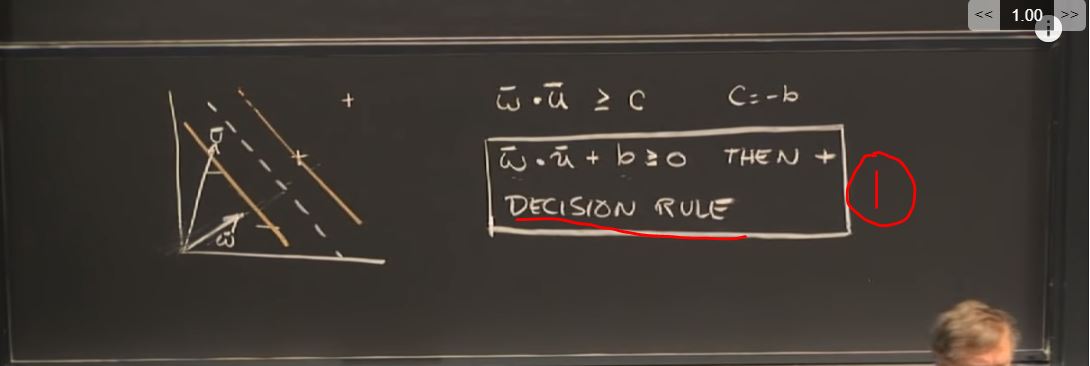 << 1.00 >>
i
w̄·ū ≥ c    c=-b
w̄·ū + b≥0 THEN +
DECISION RULE
1
+
+
ū
w̄
-
-